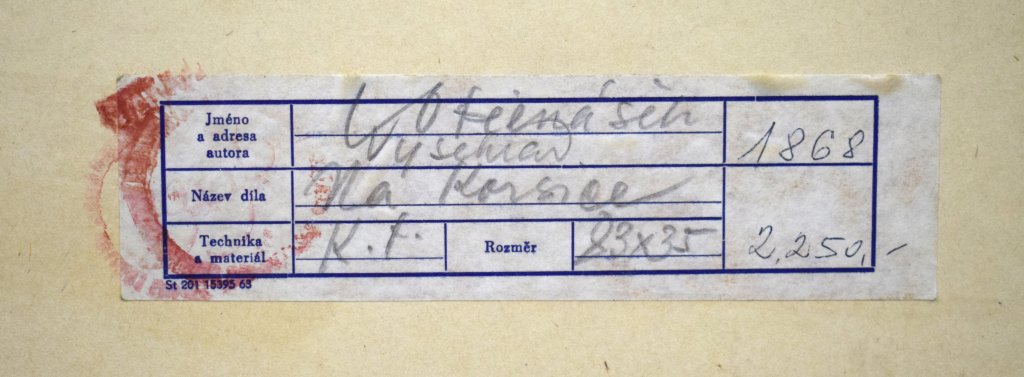 Jméno
a adresa
autora
1868
Název díla
Na Korsice
Technika
a materiál
K. t.
Rozměr
23x35
2.250,-
St 201 15395 65